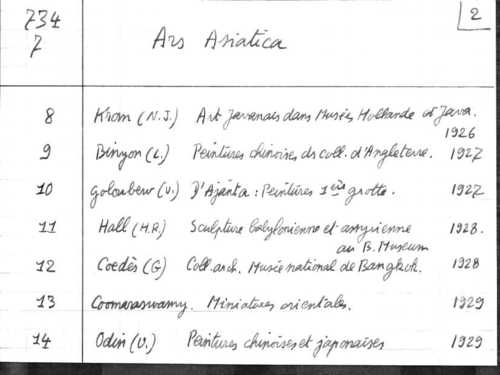 734
7
Ars Asiatica
2
8 Krom (N.J.) Art Javanais dans Musées Hollande et Java. 1926
9 Binyon (L.) Peintures chinoises ds coll. d'Angleterre. 1927
10 Goloubew (V.) D'Ajantâ : Peintures 1ère grotte. 1927
11 Hall (H.R.) Sculpture babylonienne et assyrienne au B. Museum 1928.
12 Coedès (G) Coll. arch. Musée national de Bangkok. 1928
13 Coomaraswamy. Miniatures orientales. 1929
14 Odin (U.) Peintures chinoises et japonaises 1929